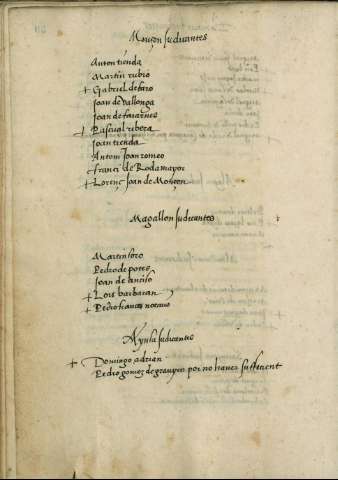 Monçon Judicantes
Anton tienda
Martin rubio
+ Gabriel de faro
Joan de Vallonga
Joan de
+ Pascual ribera
Joan tienda
Antoni Joan romeo
+ franci de Rodamayor
+ Lorenç Joan de Monçon
Magallon Judicantes
Martin foro
Pedro de potes
Joan de anciso
+ Lois barbaran
+ Pedro frances notario
Aynsa Judicantes
+ Domingo adrian
Pedro gomez de graupen por no haver sufficient